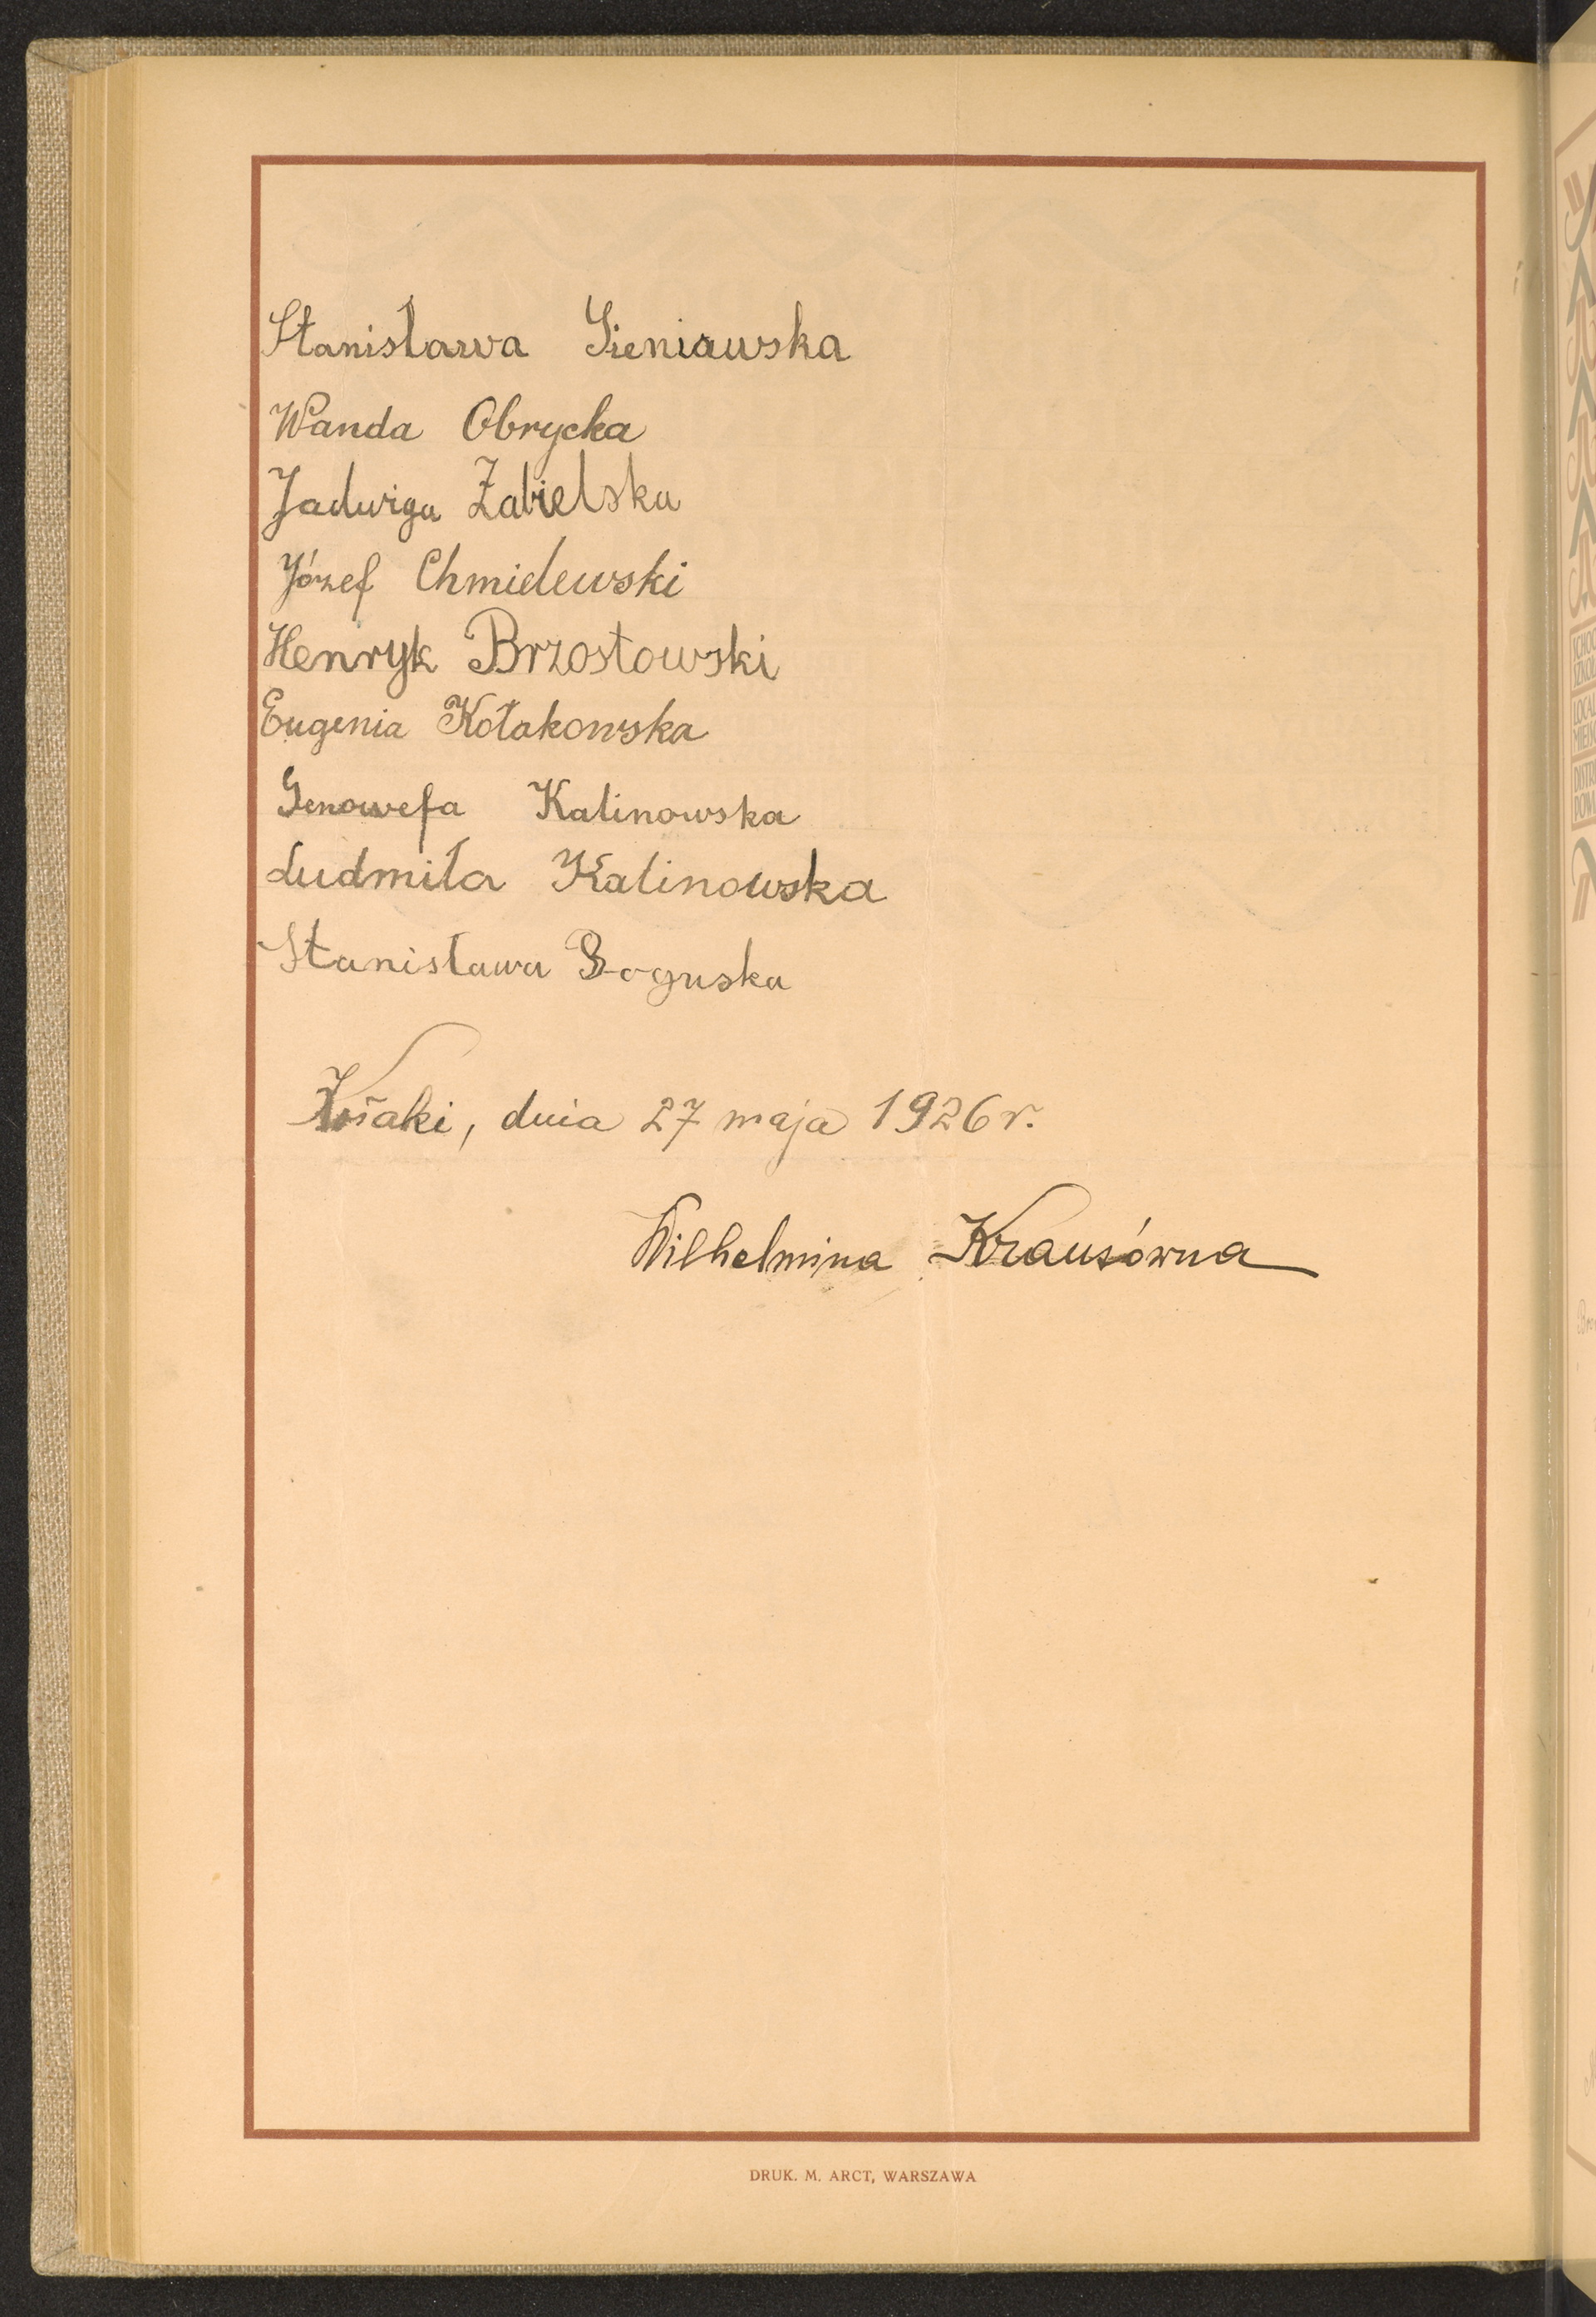 Stanisława Sieniawska
Wanda Obrycka
Jadwiga Zabielska
Józef Chmielewski
Henryk Brzostowski
Eugenia Kołakowska
Genowefa Kalinowska
Ludmiła Kalinowska
Stanisława Boguska
dnia 27 maja 1926 r.
Wilhelmina Krausówna
DRUK. M. ARCT, WARSZAWA